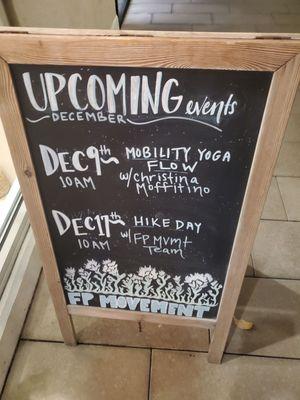 UPCOMING events
DECEMBER
DEC 9th MOBILITY YOGA
FLOW
10AM w/ Christina
Moffitino
DEC 17th HIKE DAY
10AM w/ FP MVMT
TEAM
FP MOVEMENT